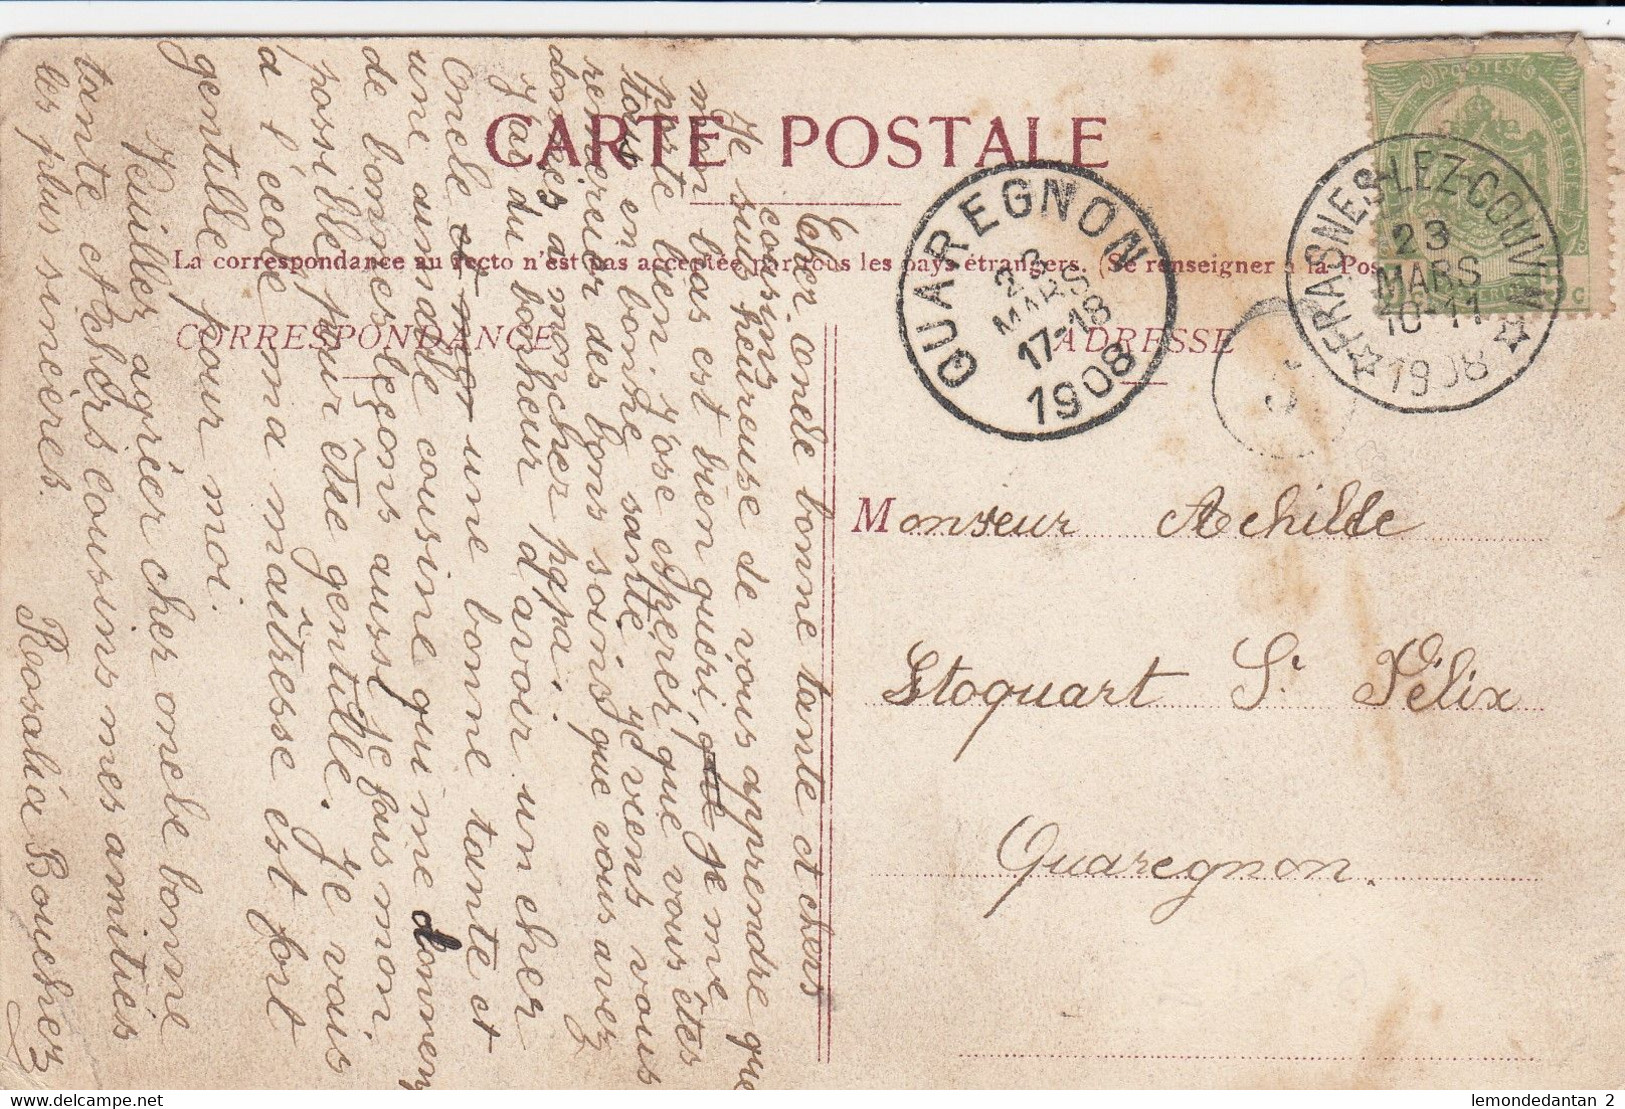 CARTE POSTALE
La correspondance au recto n'est pas acceptée par tous les pays étrangers. (Se renseigner à la Pos
CORRESPONDANCE
ADRESSE
POSTES
QUAREGNON
23
MARS
17-18
1908
FRASNES-LEZ-COUVIN
23
MARS
10-11
1908
5
Monsieur Achille
Stoquart St Félix
Quaregnon.
Cher oncle bonne tante et chers
cousins
Je suis heureuse de vous apprendre que
mon bas est bien guéri, que je me
porte bien j'ose espérer que vous êtes
tous en bonne santé, je viens vous
remercier des bons soins que vous avez
donnés a mon cher papa.
J'ai du bonheur d'avoir un cher
Oncle et une bonne tante et
une aimable cousine qui me donnent
de bonnes leçons aussi je fais mon
possible pour être gentille. Je vais
a l'école ma maîtresse est fort
gentille pour moi.
Veuillez agréer cher oncle bonne
tante et chers cousins mes amitiés
les plus sincères.
Rosalia Bouchez
lemondedantan 2